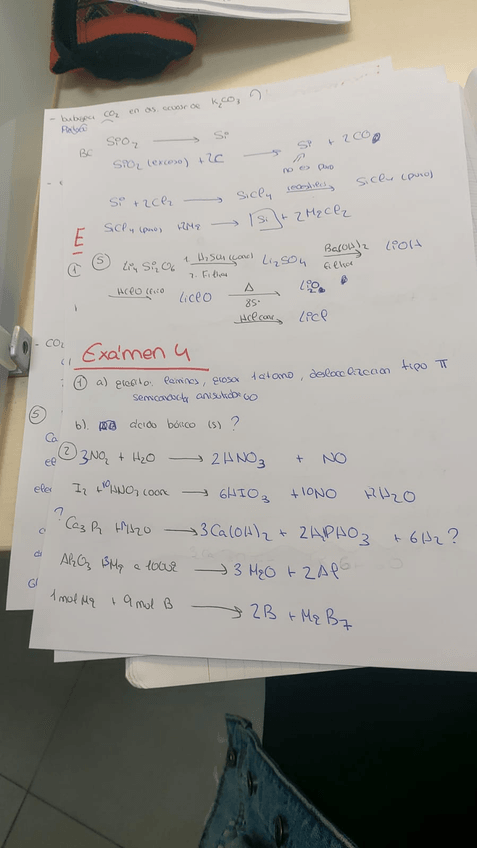 - burbujear CO₂ en dis. acuosa de K₂CO₃
SiO₂ → Si
SiO₂ (exceso) + 2C → Si + 2CO
no es puro
Si + 2Cl₂ → SiCl₄ → SiCl₄ (puro)
SiCl₄ (puro) + 2Mg → Si + 2MgCl₂
E
① ⑤ 1. H₂SO₄ (conc) Li₂SO₄ Ba(OH)₂ LiOH
2. Filtrar Filtrar
LiClO Δ
85°
HCl conc LiCl
- CO₂
Exámen 4
① a) grafito: láminas, grosor 1 átomo, deslocalización tipo π
semiconductor anisótropo
b). ácido bórico (s) ?
⑤
Ca
② 3NO₂ + H₂O → 2HNO₃ + NO
I₂ + 10HNO₃ conc → 6HIO₃ + 10NO + 2H₂O
? Ca₃P₂ + H₂O → 3Ca(OH)₂ + 2HPHO₃ + 6H₂ ?
Al₂O₃ 3Mg a 1000º → 3MgO + 2Al
1 mol Mg + 9 mol B → 2B + MgB₇